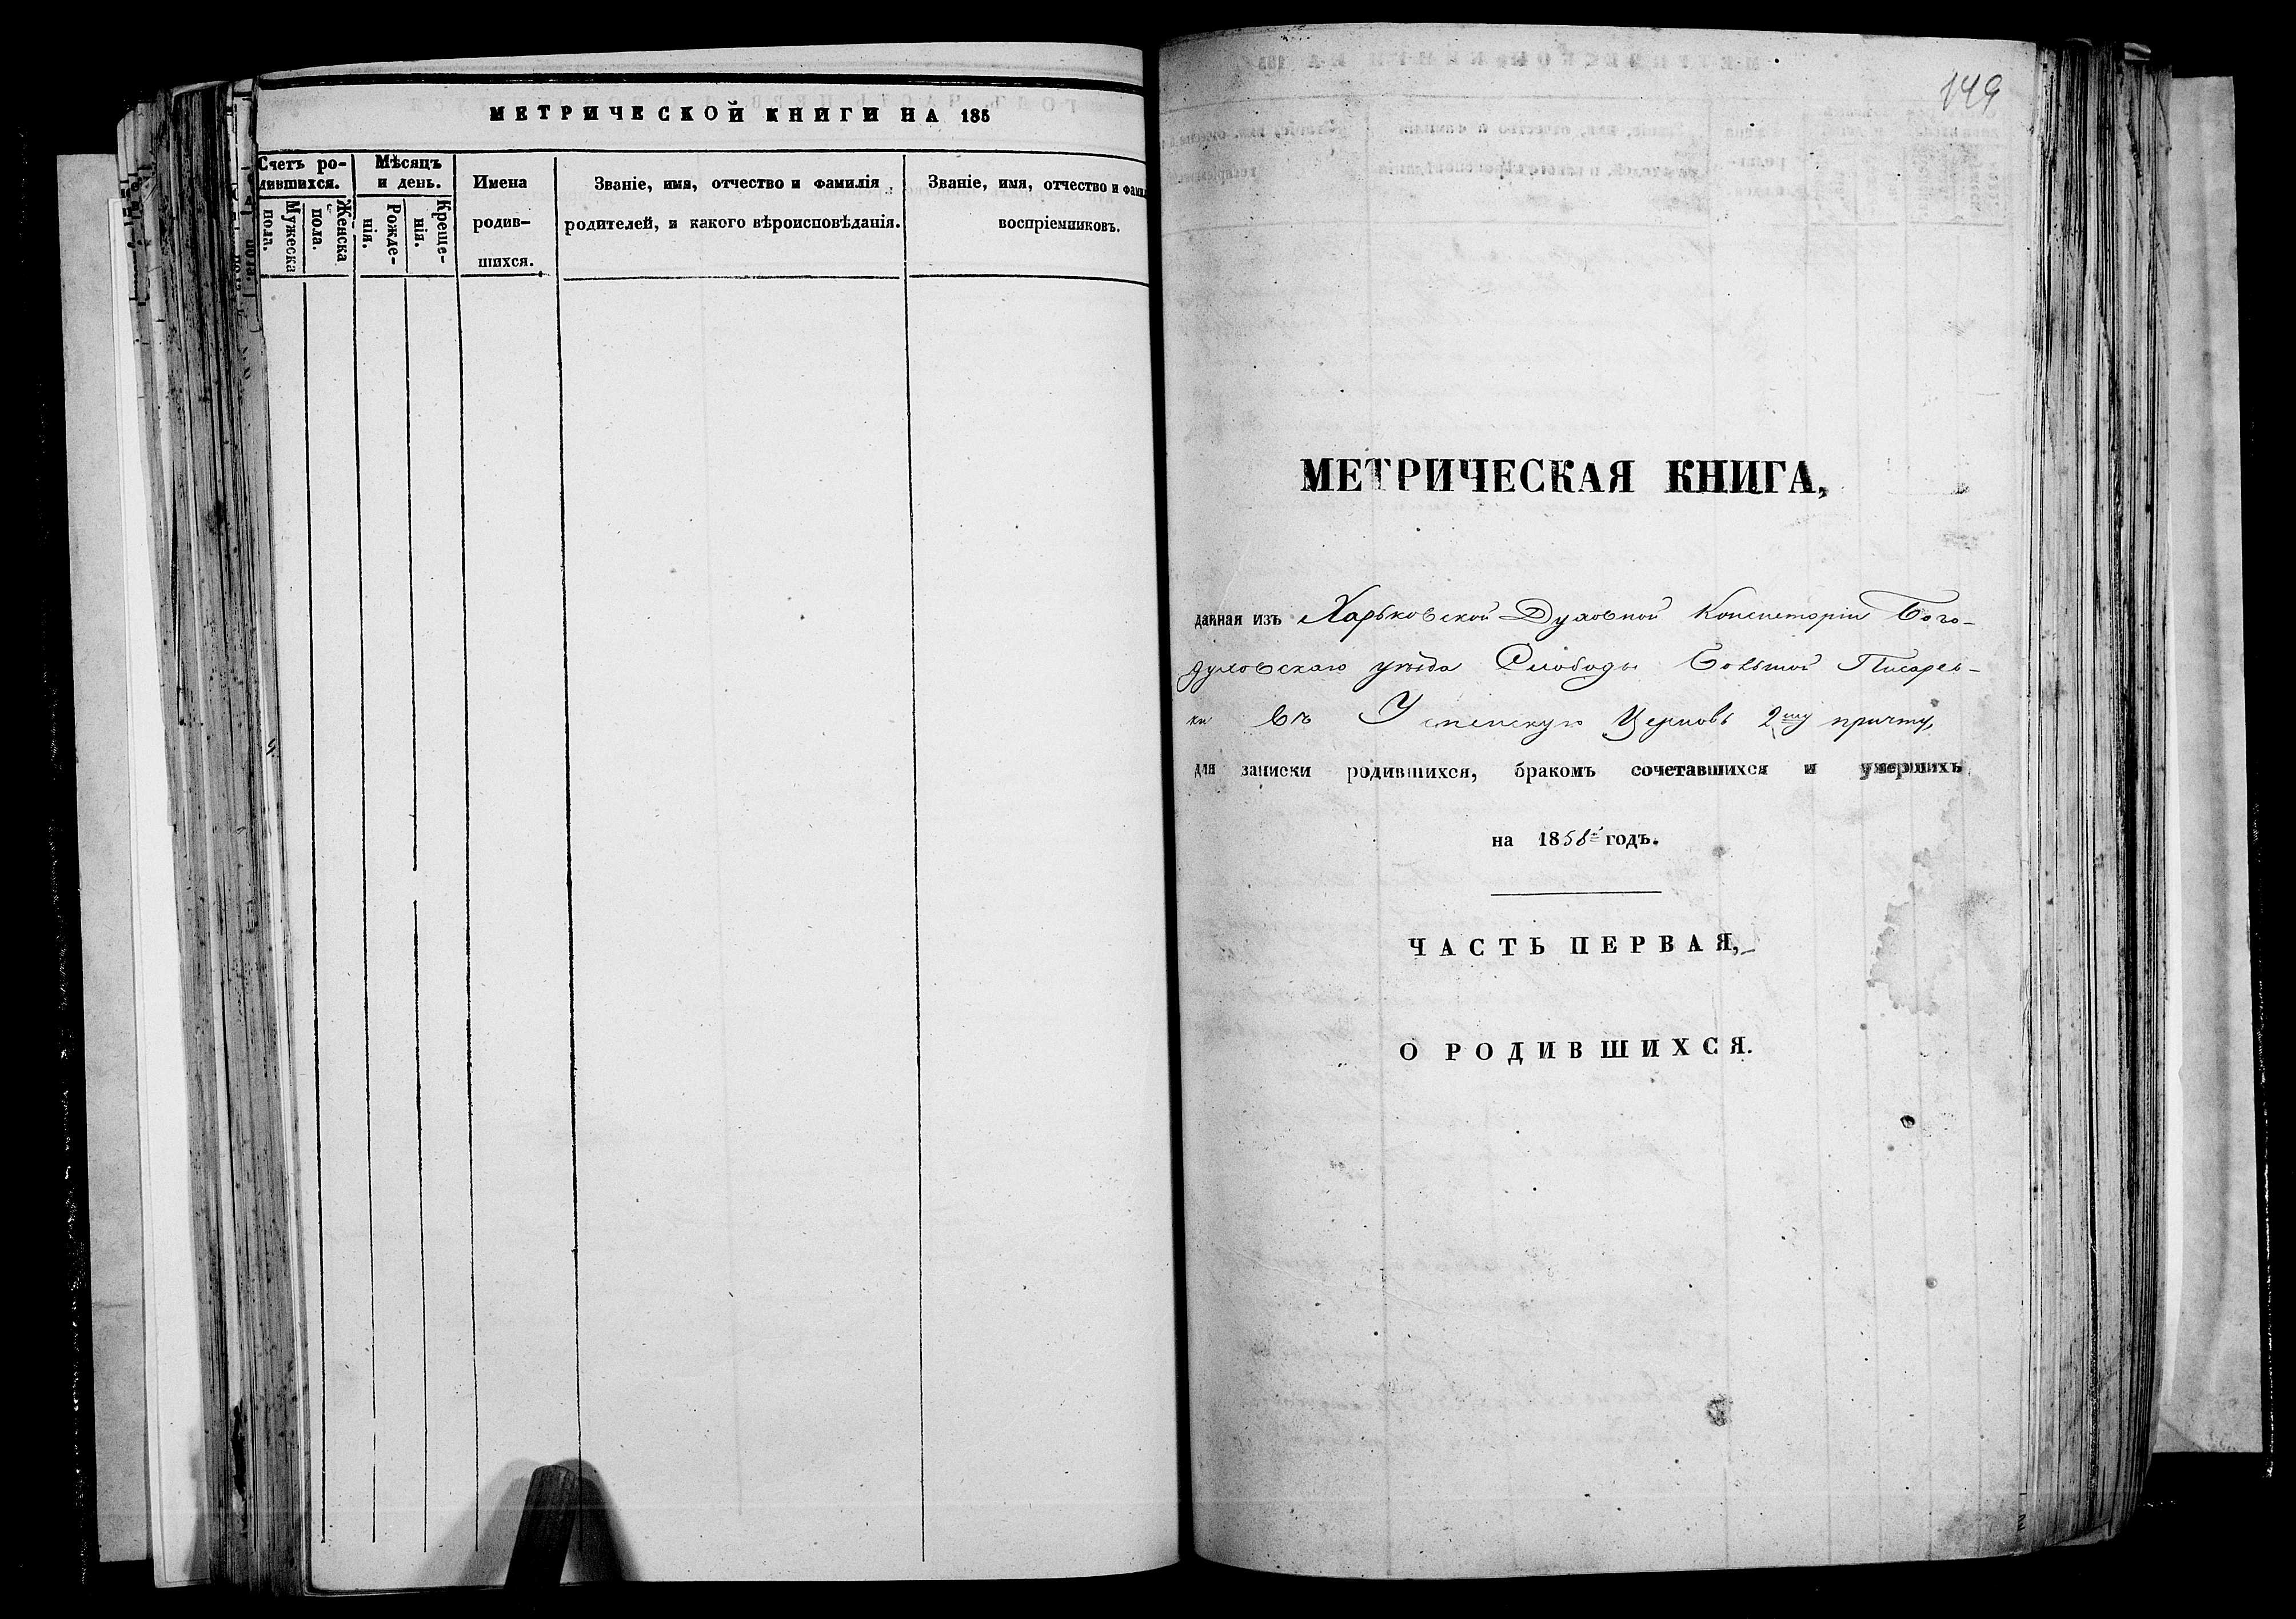 МЕТРИЧЕСКОЙ КНИГИ НА 185
Счетъ ро-
дившихся.
Мужеска
пола.
Женска
пола.
Мѣсяцъ
и день.
Рожде-
нія.
Креще-
нія.
Имена
родив-
шихся.
Званіе, имя, отчество и фамилія
родителей, и какого вѣроисповѣданія.
Званіе, имя, отчество и фами
воспріемниковъ.
149
МЕТРИЧЕСКАЯ КНИГА,
данная изъ Харьковской Духовной Консисторіи Бого-
духовскаго уѣзда Слободы Большой Писарев-
ки въ Успенскую Церковь 2му причту,
для записки родившихся, бракомъ сочетавшихся и умершихъ
на 1858й годъ.
ЧАСТЬ ПЕРВАЯ,
О РОДИВШИХСЯ.